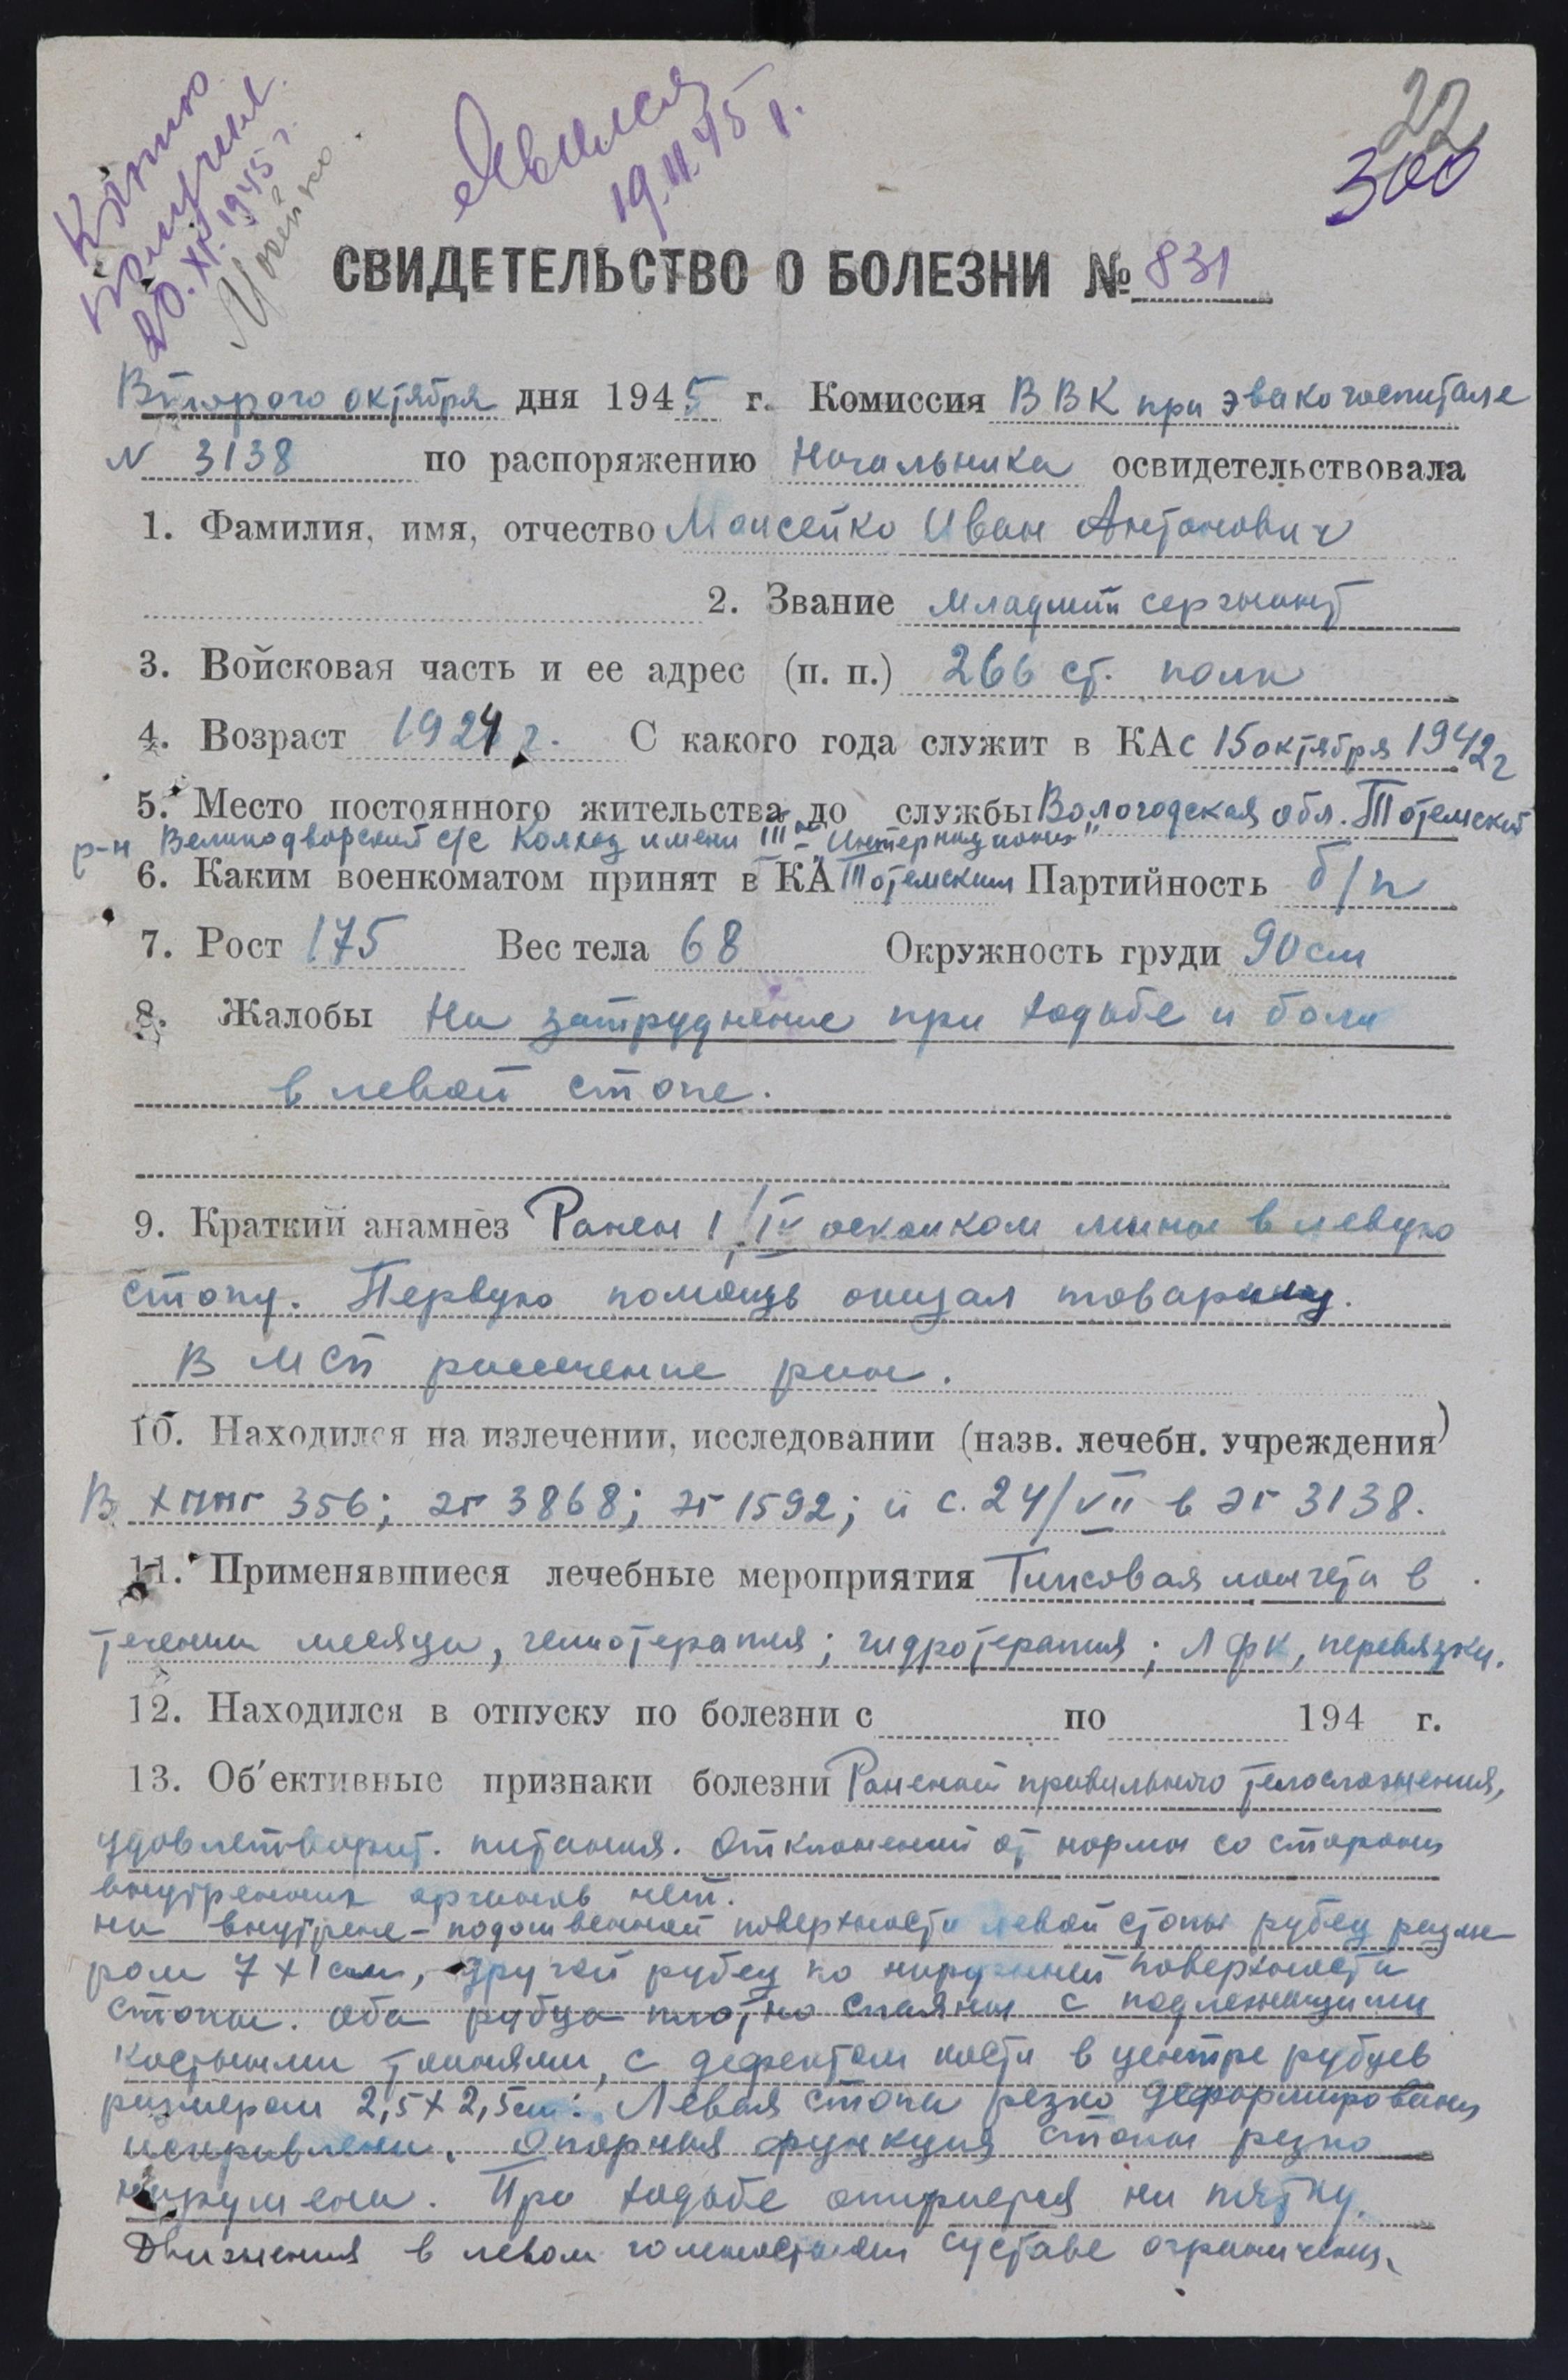 Книгу
получил
20.XI.1945 г.
Явился
19.11.45 г.
22
300
СВИДЕТЕЛЬСТВО О БОЛЕЗНИ № 831
Второго октября дня 1945 г. Комиссия ВВК при эвакогоспитале
N 3138 по распоряжению Начальника освидетельствовала
1. Фамилия, имя, отчество Моисейко Иван Антонович
2. Звание младший сержант
3. Войсковая часть и ее адрес (п. п.) 266 ст. полк
4. Возраст 1924 г. С какого года служит в КА с 15 октября 1942 г
5. Место постоянного жительства до службы Вологодская обл. Тотемский
р-н Великодворский с/с Колхоз имени III-"Интернационал"
6. Каким военкоматом принят в КА Тотемским Партийность б/п
7. Рост 175 Вес тела 68 Окружность груди 90 см
8. Жалобы На затруднение при ходьбе и боли
в левой стопе.
9. Краткий анамнез Ранен 1/IV осколком мины в левую
стопу. Первую помощь оказал товарищ.
В МСП рассечение ран.
10. Находился на излечении, исследовании (назв. лечебн. учреждения)
В ХППГ 356; ЭГ 3868; ЭГ 1592; и с. 24/VII в ЭГ 3138.
11. Применявшиеся лечебные мероприятия Гипсовая лонгета в
течении месяца, гемотерапия; гидротерапия; ЛФК, перевязки.
12. Находился в отпуску по болезни с по 194 г.
13. Об'ективные признаки болезни Раненый правильного телосложения,
удовлетворит. питания. Отклонений от нормы со стороны
внутренних органов нет.
на внутрене-подошвенной поверхности левой стопы рубец разме-
ром 7х1 см, другой рубец по наружной поверхности
стопы. Оба рубца плотно спаяны с подлежащими
костными тканями, с дефектом кости в центре рубцев
размером 2,5х2,5 см. Левая стопа резко деформирована
искривлена. Опорная функция стопы резко
нарушена. При ходьбе опирается на пятку.
Движения в левом голеностопном суставе ограничены.